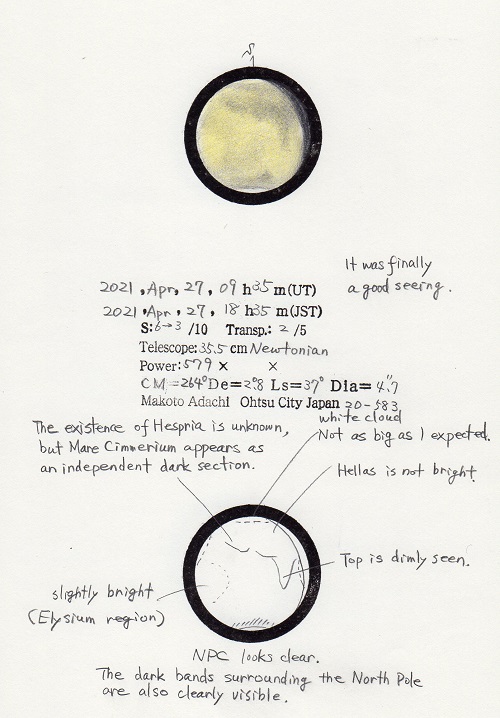 S
It was finally
a good seeing.
2021, Apr, 27, 09 h35 m(UT)
2021, Apr, 27, 18 h35 m(JST)
S: 6→3 /10 Transp.: 2 /5
Telescope: 35.5 cm Newtonian
Power: 579 × ×
CM=264° De=2°.8 Ls=37° Dia=4".7
Makoto Adachi Ohtsu City Japan 20-583
The existence of Hespria is unknown,
but Mare Cimmerium appears as
an independent dark section.
white cloud
Not as big as I expected.
Hellas is not bright.
Top is dimly seen.
slightly bright
(Elysium region)
NPC looks clear.
The dark bands surrounding the North Pole
are also clearly visible.